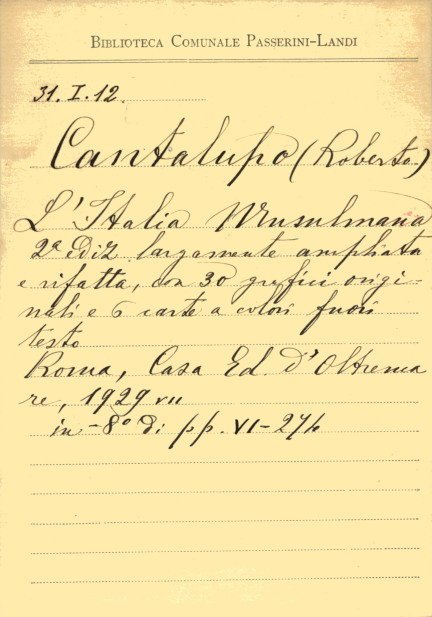 BIBLIOTECA COMUNALE PASSERINI-LANDI
31. I. 12.
Cantalupo (Roberto)
L'Italia Musulmana
2ª ediz largamente ampliata
e rifatta, con 30 grafici origi-
nali e 6 carte a colori fuori
testo
Roma, Casa Ed. d'Oltrema
re, 1929 VII
in-8° di pp. VI-274